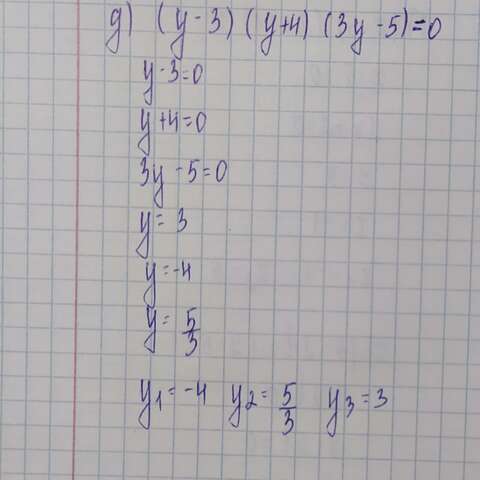 д) (y-3)(y+4)(3y-5)=0
y-3=0
y+4=0
3y-5=0
y=3
y=-4
y=5/3
y₁=-4 y₂=5/3 y₃=3